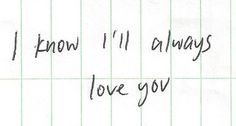 I know I'll always
love you